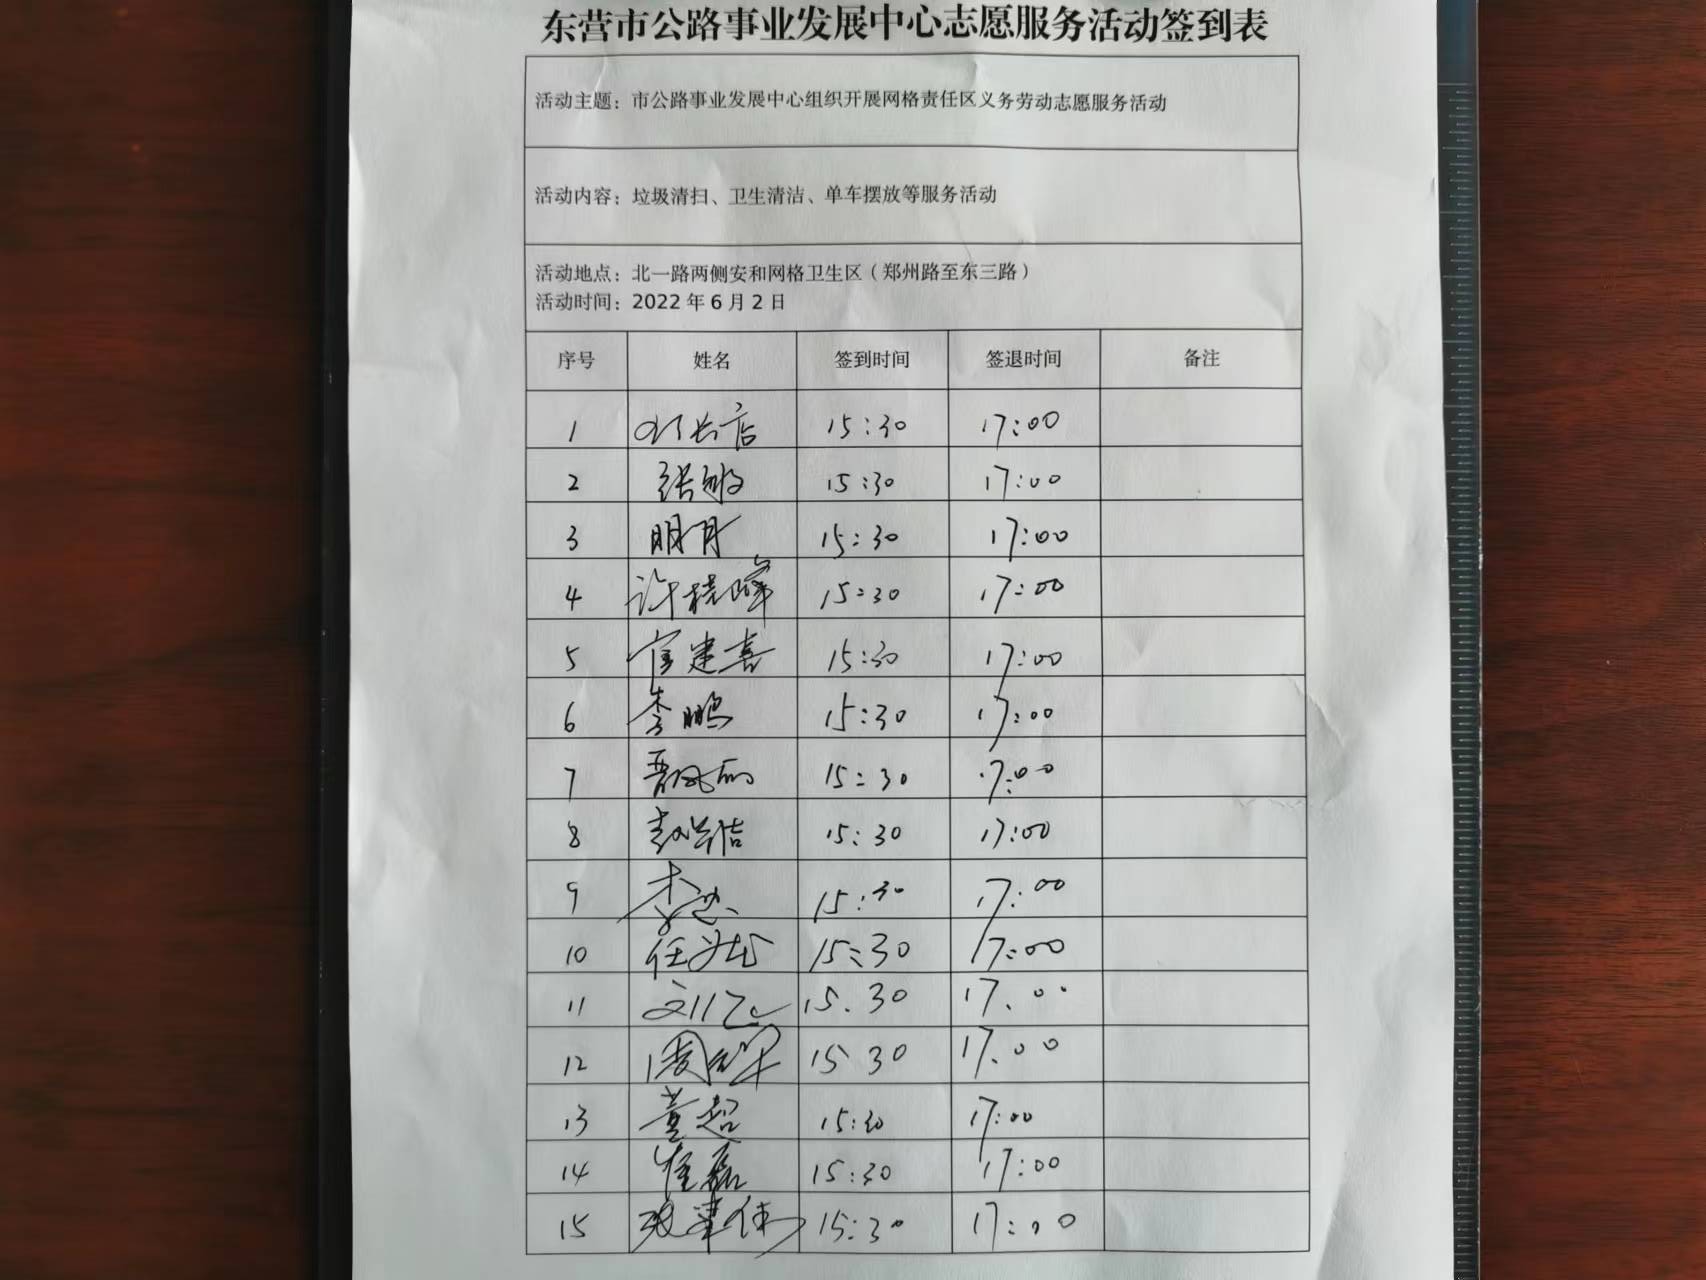 东营市公路事业发展中心志愿服务活动签到表
活动主题：市公路事业发展中心组织开展网格责任区义务劳动志愿服务活动
活动内容：垃圾清扫、卫生清洁、单车摆放等服务活动
活动地点：北一路两侧安和网格卫生区（郑州路至东三路）
活动时间：2022年6月2日
序号 姓名 签到时间 签退时间 备注
1 15:30 17:00
2 张敏 15:30 17:00
3 明月 15:30 17:00
4 许桂峰 15:30 17:00
5 官建喜 15:30 17:00
6 李鹏 15:30 17:00
7 15:30 17:00
8 15:30 17:00
9 李 15:30 17:00
10 任 15:30 17:00
11 15.30 17.00
12 周 15 30 17.00
13 董超 15:30 17:00
14 崔磊 15:30 17:00
15 15:30 17:00